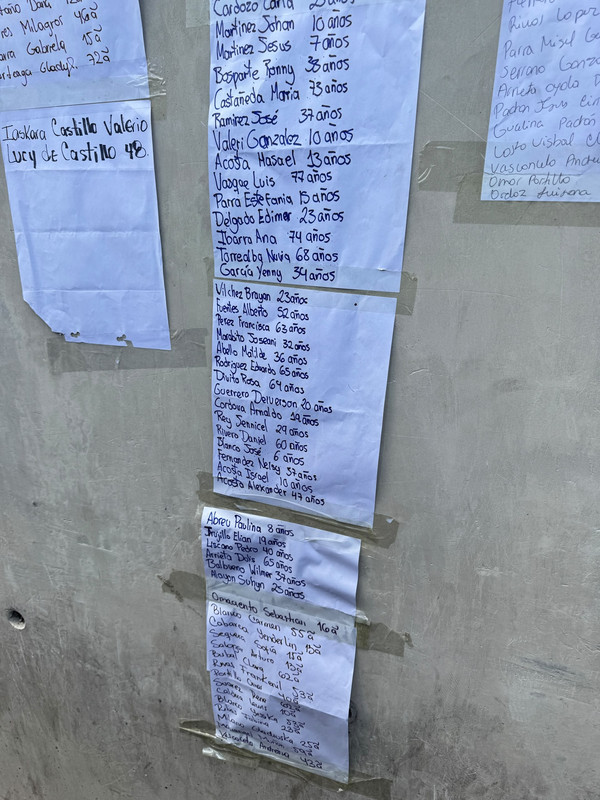 Milagros 46a
Gabriela 15a
72a
Iaskara Castillo Valerio
Lucy de Castillo 48.
Cardozo Carla
Martinez Johan 10 años
Martinez Jesus 7 años
Basparte Ronny 38 años
Castañeda Maria 73 años
Ramirez José 37 años
Valeri Gonzalez 10 años
Acosta Hasael 13 años
Vasque Luis 77 años
Parra Estefania 15 años
Delgado Edimer 23 años
Ibarra Ana 74 años
Torrealba Nuvia 68 años
García Yenny 34 años
Vilchez Brayan 23años
Fuentes Alberto 52 años
Perez Francisca 63 años
Morabito Joseani 32 años
Abello Matilde 36 años
Rodriguez Eduardo 65 años
Divita Rosa 64 años
Guerrero Deiverson 20 años
Cordova Arnaldo 19 años
Rey Jennicel 29 años
Rivero Daniel 60 años
Blanco José 6 años
Fernandez Nelsy 37 años
Acosta Israel 10 años
Acosta Alexander 47 años
Abreu Paulina 8 años
Trujillo Elian 19 años
Liscano Pedro 40 años
Arrieta Delis 65 años
Balbueno Wilmer 37 años
Alagon Suhyn 25 años
Sebastian 16a
Blanco Carmen 55a
Cabarca Yenderlin 15a
Segura Sofia 15a
Arturo 13a
Bubal Clara 62a
Rivas 53a
Blanco
25a
Andreina 43a
Rivas Lopez
Parra Misel
Serrano Gonza
Arrieta oyola
Padron Jesus
Gualina Padron
Loito Visbal
Vasconcelo Andre
Omar Portillo
Ordoz